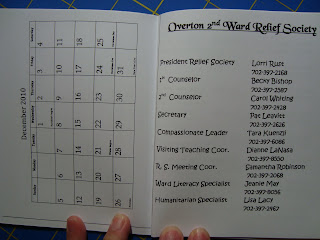 December 2010
Sunday Monday Tuesday Wednesday Thursday Friday Saturday
1 2 3 4
5 6 7 8 9 10 11
12 13 14 15 16 17 18
19 20 21 22 23 24 25
26 27 28 29 30 31
Overton 2nd Ward Relief Society
President Relief Society Lorri Rust
702-397-2168
1st Counselor Becky Bishop
702-397-2587
2nd Counselor Carol Whiting
702-397-2428
Secretary Pat Leavitt
702-397-2626
Compassionate Leader Tara Kuenzli
702-397-6086
Visiting Teaching Coor. Dianne LaNasa
702-397-8550
R. S. Meeting Coor. Samantha Robinson
702-397-2068
Ward Literacy Specialist Jeanie May
702-397-8056
Humanitarian Specialist Lisa Lacy
702-397-2967